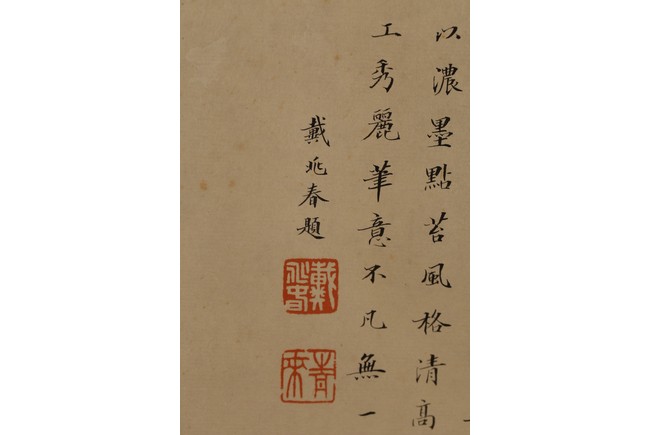 以濃墨點苔風格清高
工秀麗筆意不凡無一
戴兆春題
戴兆春
青來